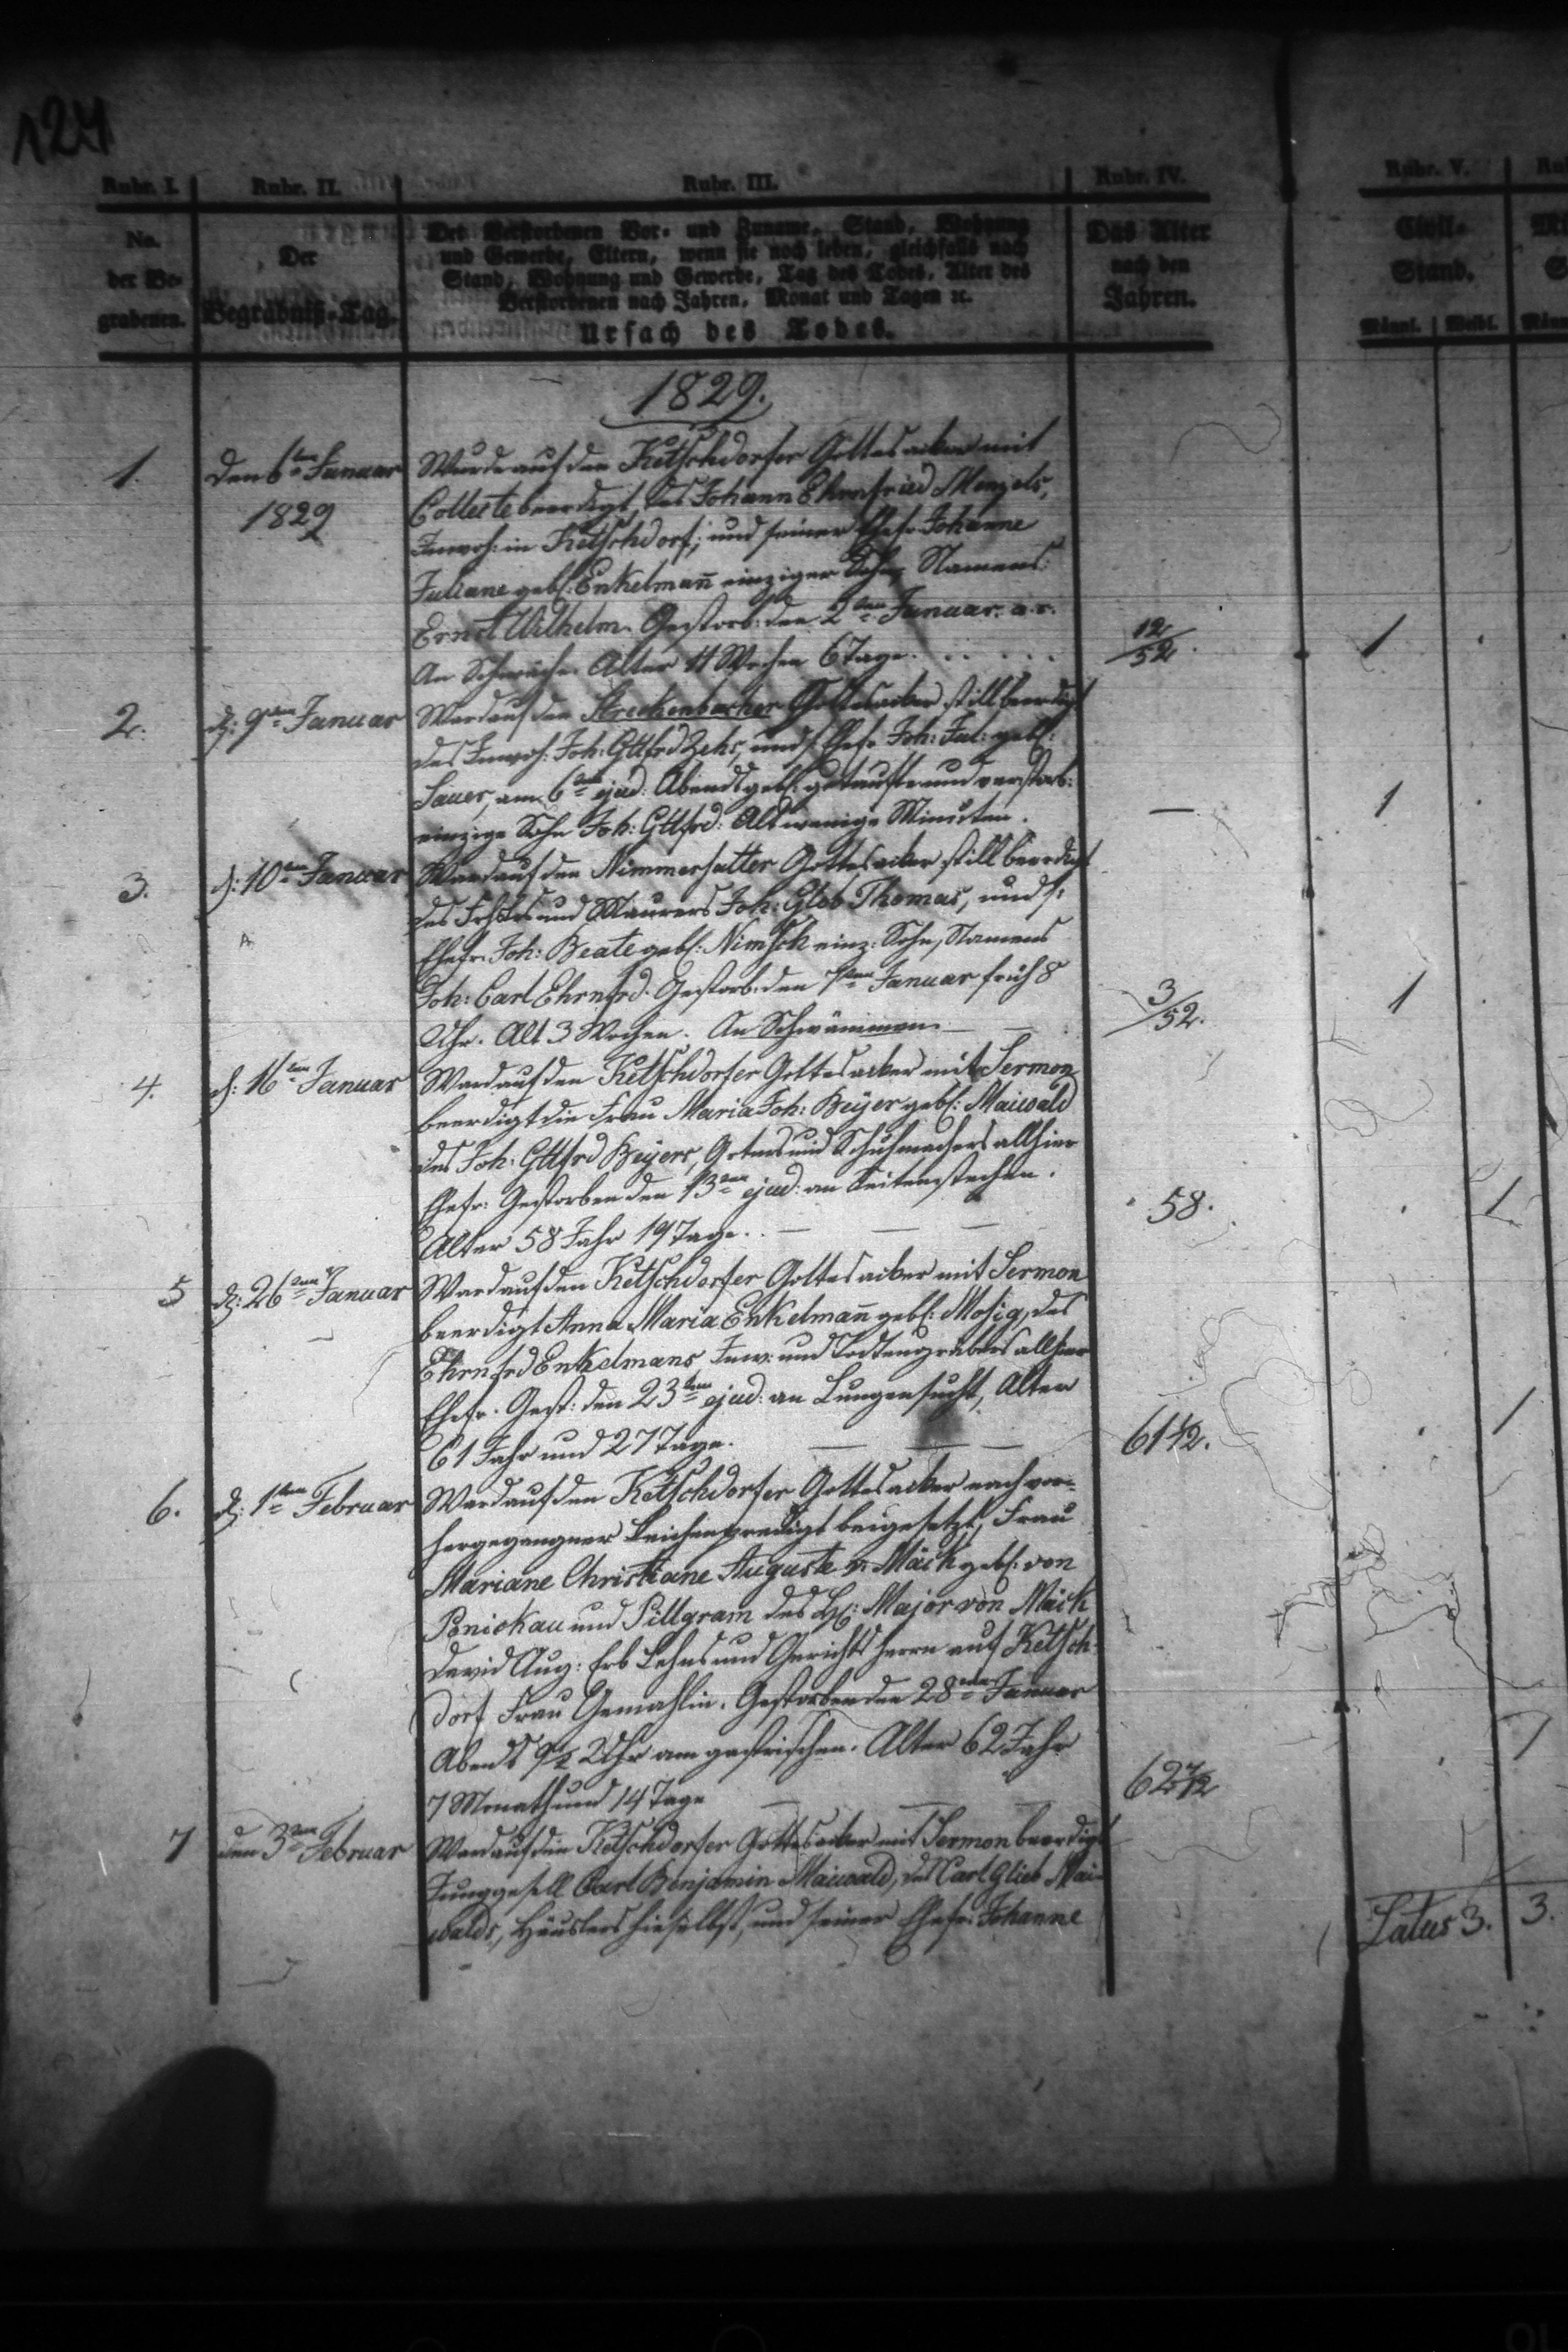 124
Rubr. I. Rubr. II. Rubr. III. Rubr. IV. Rubr. V.
No. der Be- grabenen.
Der Begräbniß-Tag.
Des Verstorbenen Vor- und Zuname, Stand, Wohnung
und Gewerbe, Eltern, wenn sie noch leben, gleichfalls nach
Stand, Wohnung und Gewerbe, Tag des Todes, Alter des
Verstorbenen nach Jahren, Monat und Tagen ꝛc.
Ursach des Todes.
Das Alter nach den Jahren.
Civil- Stand.
Männl. Weibl.
1829.
1. den 6ten Januar Wurde auf den Ketschdorfer Gottesacker mit
1829 Collecte beerdigt, des Johann Ehrenfried Menzels,
Inwoh: in Ketschdorf, und seiner Ehefr. Johanne
Juliane geb: Enkelmañ einziger Sohn, Namens:
Ernst Wilhelm. Gestorb: den 2ten Januar. a. c.
An Schwäche. Alter 11 Wochen 6 Tage. 12/52. 1
2. d: 9ten Januar Ward auf den Streckenbacher Gottesacker still beerdigt
des Inwoh: Joh: Gttfrd Zehr, und s: Ehefr. Joh: Jul: geb:
Sauer, am 6ten ejud: Abends geb: getaufte und verstorb:
einzige Sohn Joh: Gttfrd: Alt wenige Minuten. — 1
3. d: 10ten Januar Ward auf den Nimmersatter Gottesacker still beerdigt
des und Maurers Joh: Glob Thomas, und s:
Ehefr. Joh: Beate geb: Nimsch einz: Sohn, Namens
Joh: Carl Ehrnfrd. Gestorb: den 7ten Januar früh 8
Uhr. Alt 3 Wochen. An Schwämmen. 3/52. 1
4. d: 16ten Januar Ward auf den Ketschdorfer Gottesacker mit Sermon
beerdigt die Frau Maria Joh: Beyer geb: Maiwald
des Joh: Gttfrd Beyers, und Schuhmachers allhier
Ehefr: Gestorben den 13ten ejud: an Seitenstechen.
Alter 58 Jahr 19 Tage. 58. 1
5 d: 26ten Januar Ward auf den Ketschdorfer Gottesacker mit Sermon
beerdigt Anna Maria Enkelmañ geb: Mosig, des
Ehrnfrd Enkelmans, Inw: und Todtengräbers allhier
Ehefr. Gest: den 23ten ejud: an Lungensucht, Alter
61 Jahr und 27 Tage. 61 1/12. 1
6. d: 1ten Februar Ward auf den Ketschdorfer Gottesacker nach vor-
hergegangner Leichenpredigt beigesetzt, Frau
Mariane Christiane Auguste v: Mäck geb: von
Ponickau und Pillgram des H: Major von Mäck
David Aug: Erb Lehns und Gerichts Herrn auf Ketsch-
dorf Frau Gemahlin. Gestorben den 28ten Januar
Abends 9½ Uhr am gastrischen. Alter 62 Jahr
7 Monath und 14 Tage 62 7/12 1
7 den 3ten Februar Ward auf den Ketschdorfer Gottesacker mit Sermon beerdigt
Junggesell Carl Benjamin Maiwald, des Carl Glieb Mai-
walds, Häuslers hieselbst, und seiner Ehefr: Johanne
Latus 3. 3.